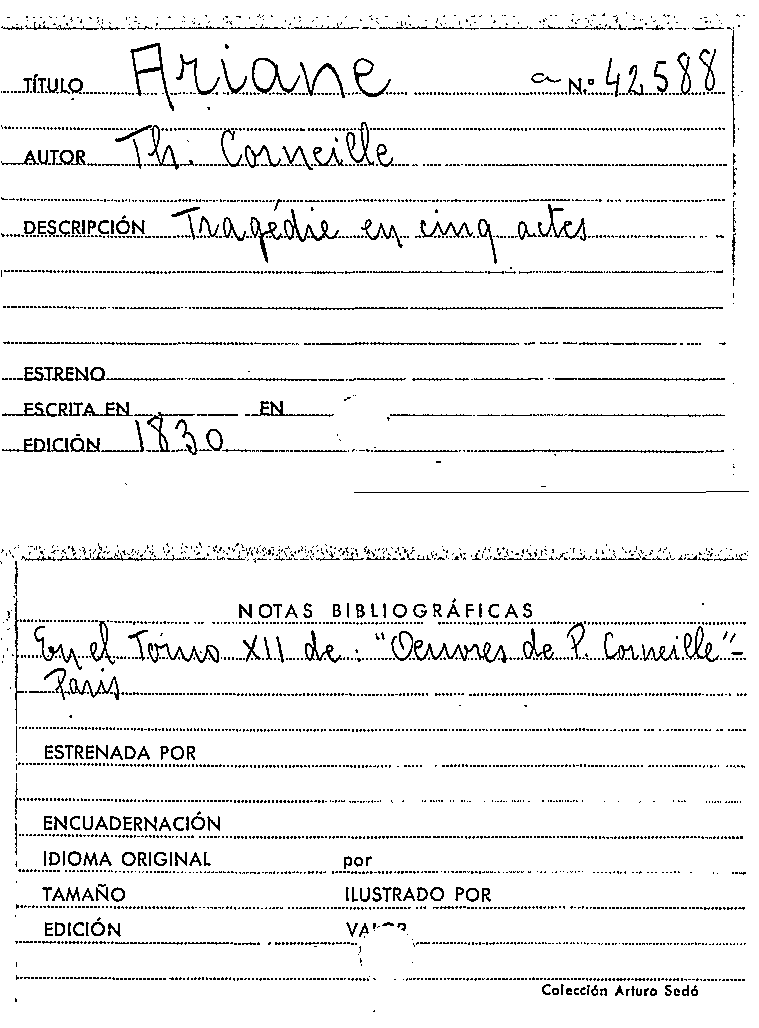 TÍTULO Ariane a N.º 42588
AUTOR Th. Corneille
DESCRIPCIÓN Tragédie en cinq actes
ESTRENO
ESCRITA EN EN
EDICIÓN 1830
NOTAS BIBLIOGRÁFICAS
En el Tomo XII de: "Oeuvres de P. Corneille"-
Paris
ESTRENADA POR
ENCUADERNACIÓN
IDIOMA ORIGINAL por
TAMAÑO ILUSTRADO POR
EDICIÓN VALOR
Colección Arturo Sedó